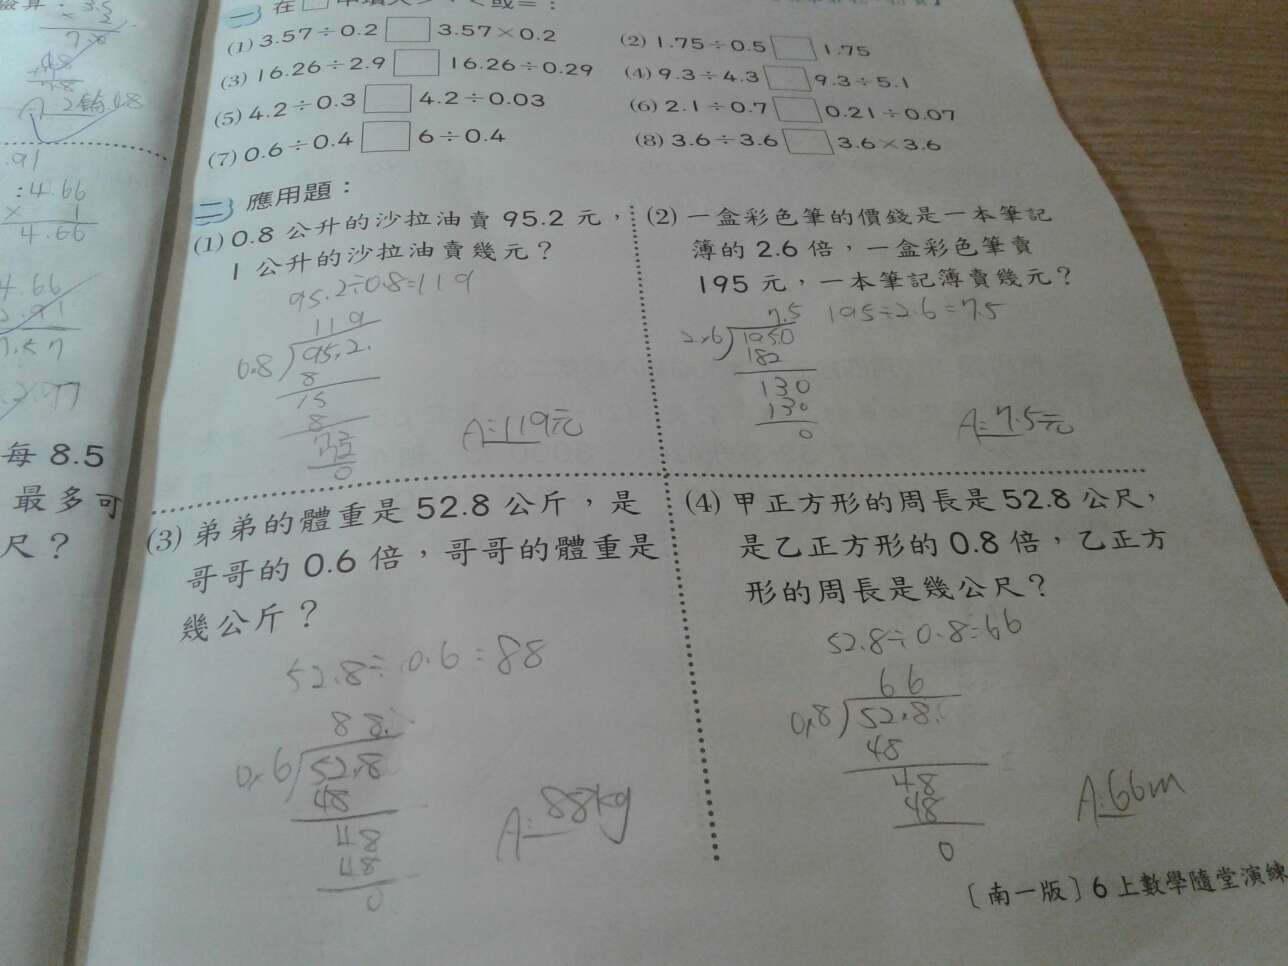 3.5
一 在□中填入
(1) 3.57÷0.2 □ 3.57×0.2
(2) 1.75÷0.5 □ 1.75
(3) 16.26÷2.9 □ 16.26÷0.29
(4) 9.3÷4.3 □ 9.3÷5.1
(5) 4.2÷0.3 □ 4.2÷0.03
(6) 2.1÷0.7 □ 0.21÷0.07
(7) 0.6÷0.4 □ 6÷0.4
(8) 3.6÷3.6 □ 3.6×3.6
.91
:4.66
× 1
4.66
4.66
每 8.5
最多可
尺？
二 應用題：
(1) 0.8 公升的沙拉油賣 95.2 元，
1 公升的沙拉油賣幾元？
95.2÷0.8=119
119
0.8 95.2
8
15
8
72
72
0
A:119元
(2) 一盒彩色筆的價錢是一本筆記
簿的 2.6 倍，一盒彩色筆賣
195 元，一本筆記簿賣幾元？
195÷2.6=7.5
7.5
2.6 195.0
182
130
130
0
A:7.5元
(3) 弟弟的體重是 52.8 公斤，是
哥哥的 0.6 倍，哥哥的體重是
幾公斤？
52.8÷0.6=88
88
0.6 52.8
48
48
48
0
A:88kg
(4) 甲正方形的周長是 52.8 公尺，
是乙正方形的 0.8 倍，乙正方
形的周長是幾公尺？
52.8÷0.8=66
66
0.8 52.8
48
48
48
0
A:66m
〔南一版〕6 上數學隨堂演練